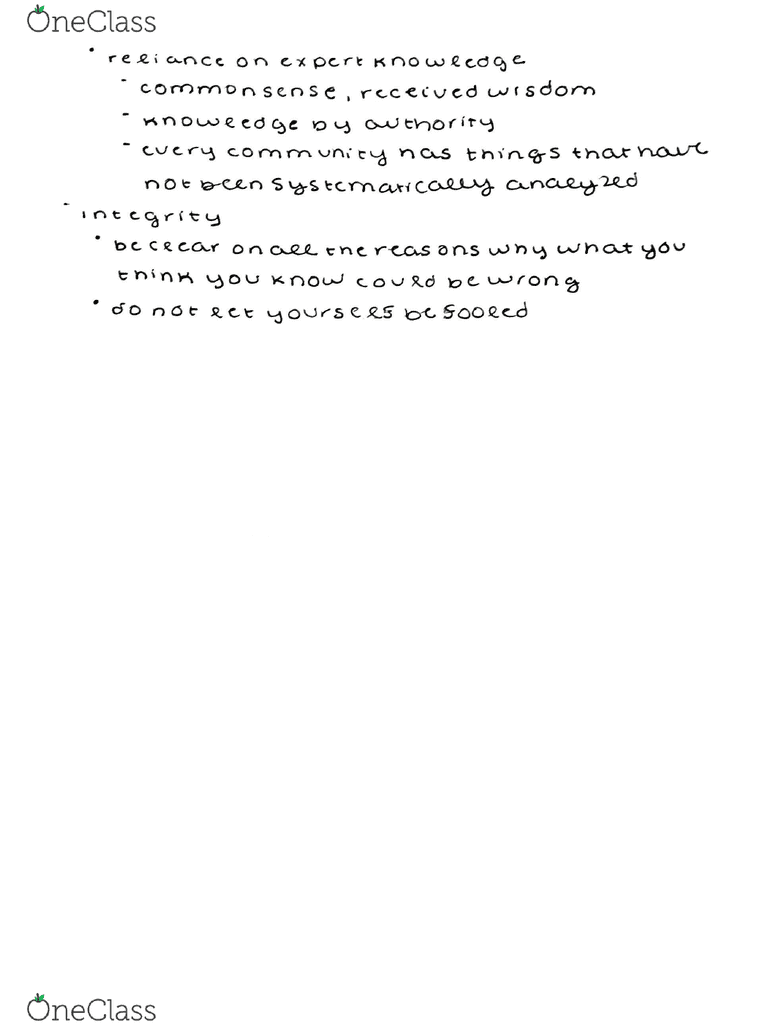 OneClass
• reliance on expert knowledge
- common sense, received wisdom
- knowledge by authority
- every community has things that have
not been systematically analyzed
- integrity
• be clear on all the reasons why what you
think you know could be wrong
• do not let yourself be fooled
OneClass